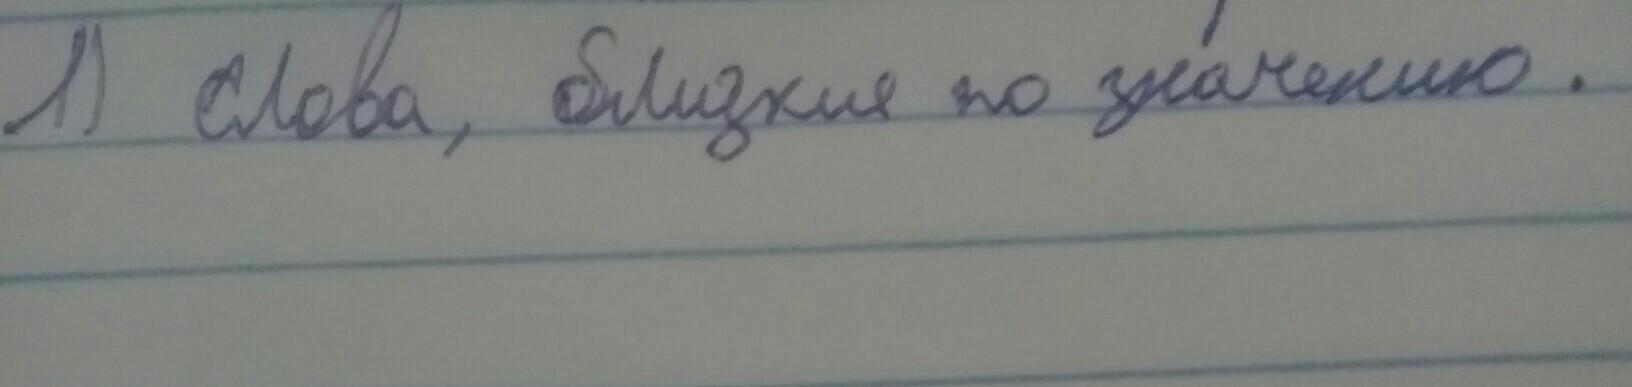 1) Слова, близкие по значению.